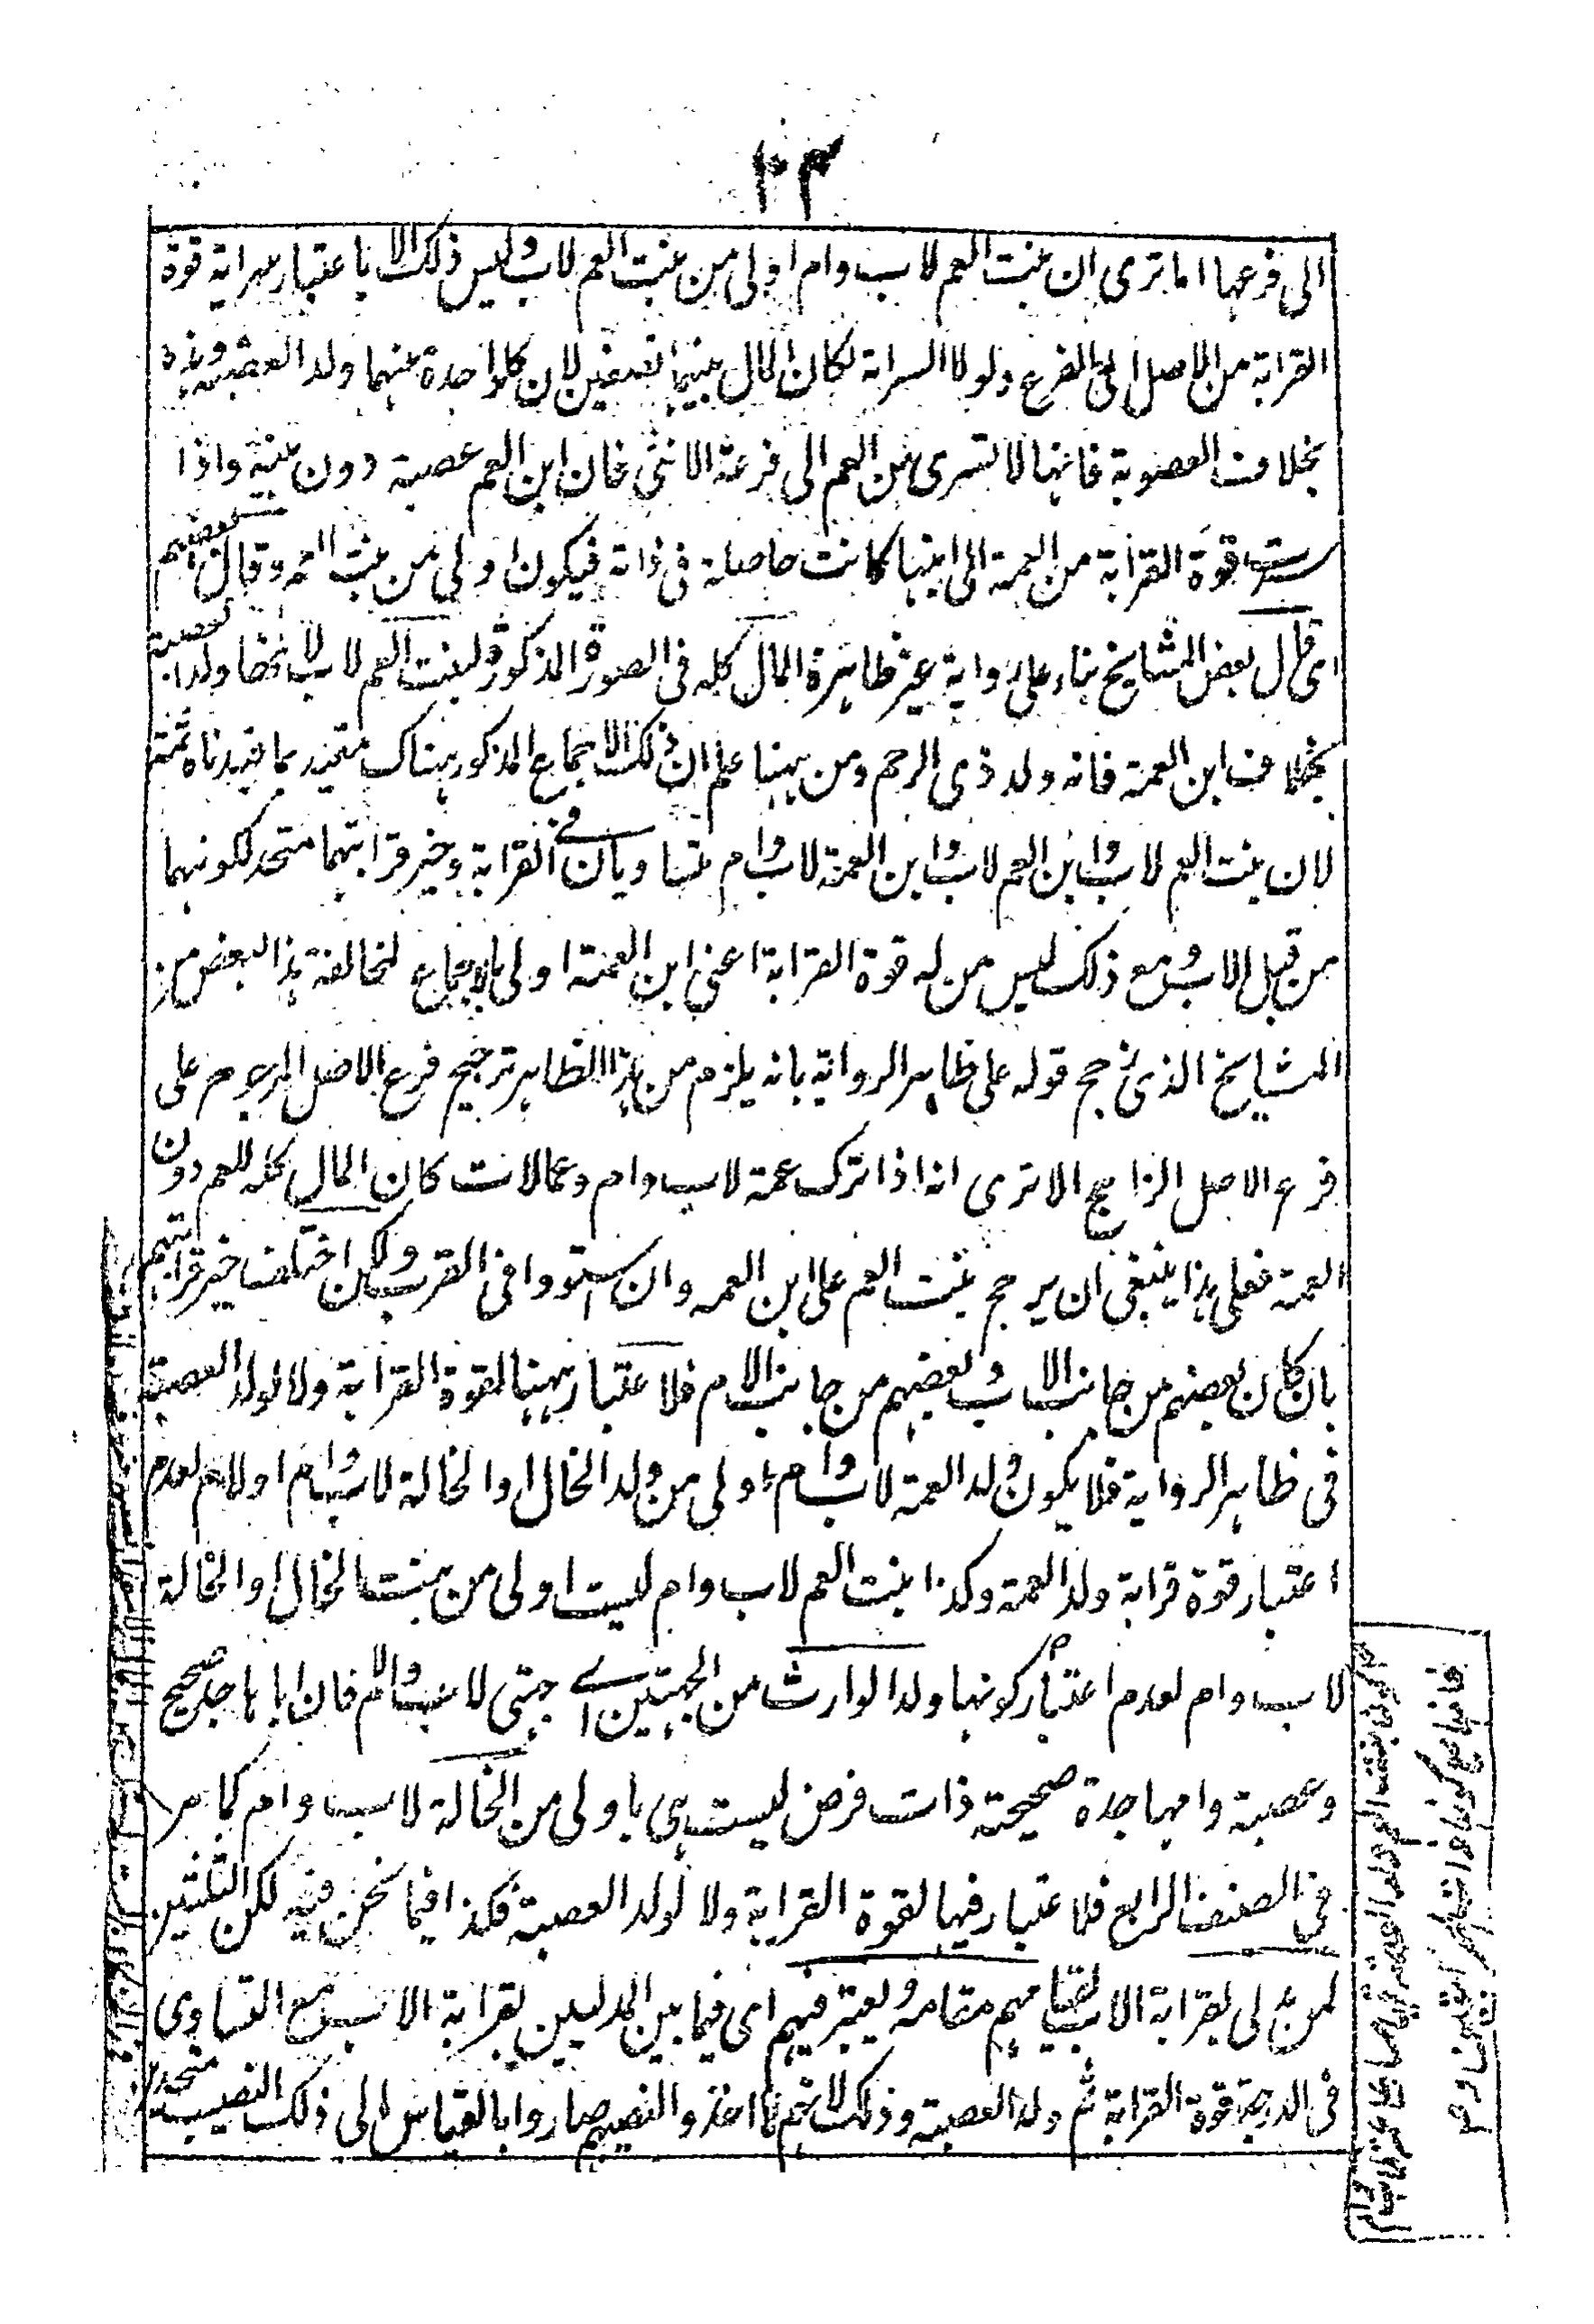 ٢٠٣
الى فرعها اما ترى ان بنت العم لاب وام اولى من بنت العم لاب وليس ذلك الا باعتبار سراية قوة
القرابة من الاصل الى الفرع ولولا السراية لكان المال بينهما نصفين لان كل واحدة منهما ولد العصبة وهذه
بخلاف العصوبة فانها لا تسرى من العم الى فرعه الانثى فان ابن العم عصبة دون بنته واذا
سرت قوة القرابة من العمة الى ابنها كانت حاصلة فى ذاته فيكون اولى من بنت العم وقال بعضهم
اى قال بعض المشايخ بناء على رواية غير ظاهرة المال كله فى الصورة المذكورة لبنت العم لاب لانها ولد العصبة
بخلاف ابن العمة فانه ولد ذى الرحم ومن ههنا علم ان ذلك الاجماع المذكور هناك مقيد بما قيدناه ثمة
لان بنت العم لاب وابن العم لاب وابن العمة لاب وام متساويان فى القرابة وحيز قرابتهما متحد لكونهما
من قبل الاب ومع ذلك ليس من له قوة القرابة اعنى ابن العمة اولى بالاجماع لمخالفة هذا البعض من
المشايخ الذى رجح قوله على ظاهر الرواية بانه يلزم من هذا الظاهر ترجيح فرع الاصل المرجوح على
فرع الاصل الراجح الا ترى انه اذا ترك عمة لاب وام وعما لاب كان المال كله للعم دون
العمة فعلى هذا ينبغى ان يرجح بنت العم على ابن العمه وان استووا فى القرب ولكن اختلف حيز قرابتهم
بان كان بعضهم من جانب الاب وبعضهم من جانب الام فلا اعتبار ههنا لقوة القرابة ولا لولد العصبة
فى ظاهر الرواية فلا يكون ولد العمة لاب وام اولى من ولد الخال او الخالة لاب وام او لام لعدم
اعتبار قوة قرابة ولد العمة وكذا بنت العم لاب وام ليست اولى من بنت الخال او الخالة
لاب وام لعدم اعتبار كونها ولد الوارث من الجهتين اے جهتى لاب والام فان ابا ها جد صحيح
وعصبة وامها جدة صحيحة ذات فرض ليست هى باولى من الخالة لاب وام كما مر
فى الصنف الرابع فلا اعتبار فيها لقوة القرابة ولا لولد العصبة فكذا فيما نحن فيه لكن الثلثين
لمن يدلى بقرابة الاب لقيامهم مقامه ويعتبر فيهم اى فيما بين المدليين بقرابة الاب مع التساوى
فى الدرجة قوة القرابة ثم ولد العصبة وذلك لانهم لما اخذوا نصيبهم صاروا بالقياس الى ذلك النصيب متحدى